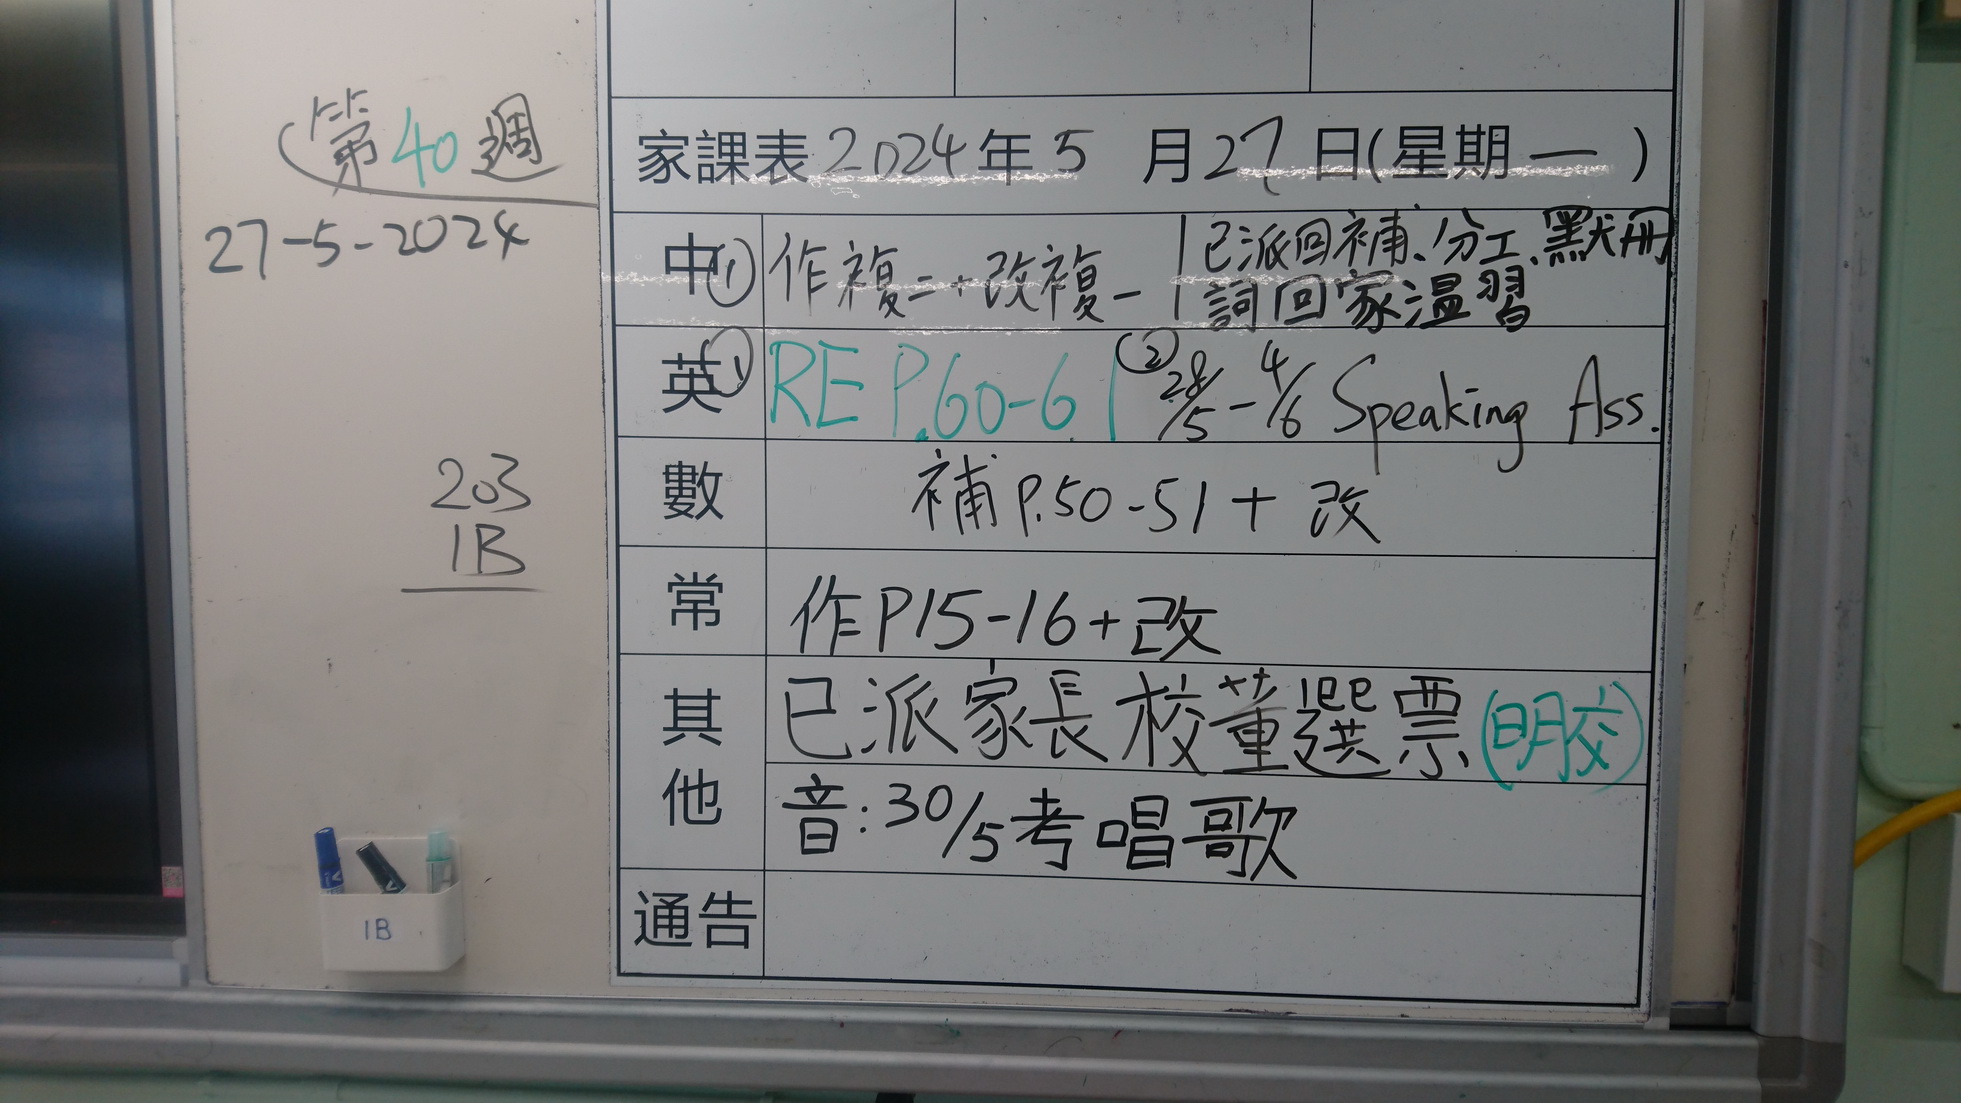 第40週
27-5-2024
203
1B
1B
家課表2024年5月27日(星期一)
中 ①作複二+改複一 | 已派回補、分工、默冊
詞回家溫習
英 ① RE P.60-61 ② 28/5-4/6 Speaking Ass.
數 補P.50-51+改
常 作P15-16+改
其他 已派家長校董選票(明交)
音:30/5考唱歌
通告